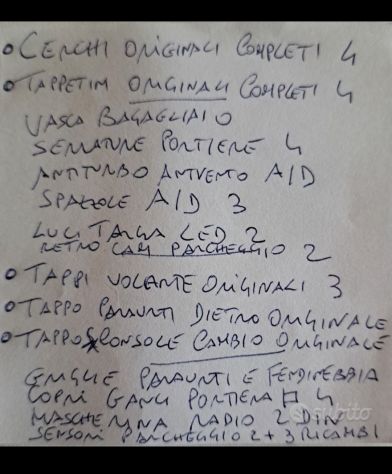 • CERCHI ORIGINALI COMPLETI 4
• TAPPETINI ORIGINALI COMPLETI 4
VASCA BAGAGLIAIO
SERRATURE PORTIERE 4
ANTITURBO ANTVENTO A/D
SPAZZOLE A/D 3
LUCI TARGA LED 2
RETRO CAM PARCHEGGIO 2
• TAPPI VOLANTE ORIGINALI 3
• TAPPO PARAURTI DIETRO ORIGINALE
• TAPPO CONSOLE CAMBIO ORIGINALE
GRIGLIE PARAURTI E FENDINEBBIA
COPRI GANCI PORTIERA 4
MASCHERINA RADIO 2 DIN
SENSORI PARCHEGGIO 2 + 3 RICAMBI
subito